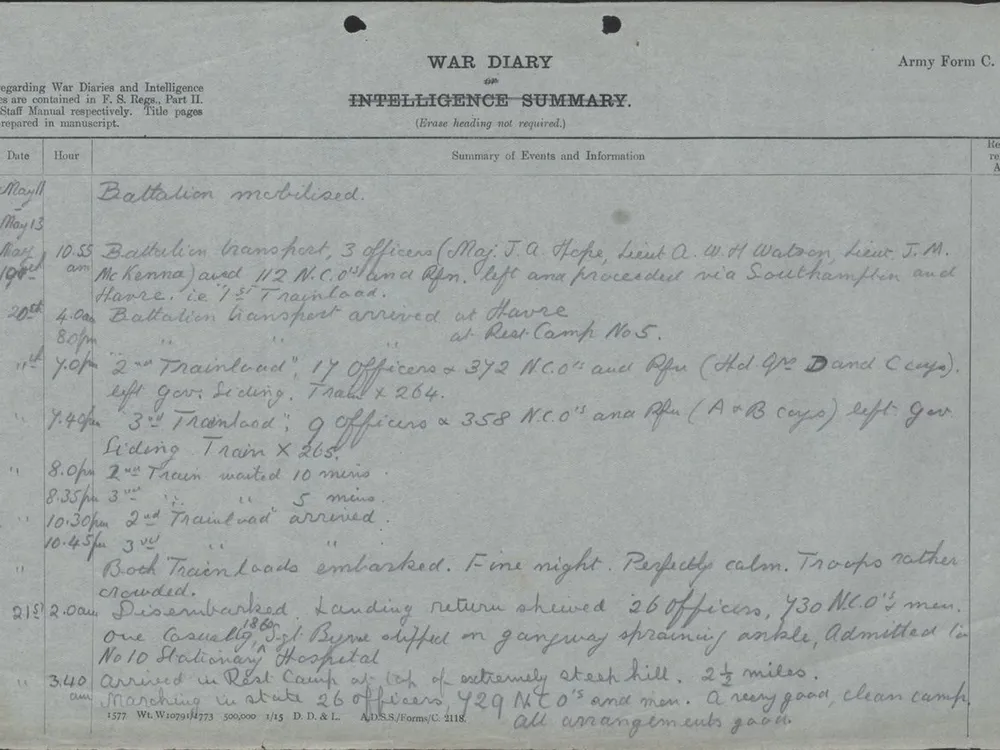 WAR DIARY
Army Form C.
or
egarding War Diaries and Intelligence
es are contained in F. S. Regs., Part II.
Staff Manual respectively. Title pages
repared in manuscript.
INTELLIGENCE SUMMARY.
(Erase heading not required.)
Date Hour Summary of Events and Information
May 11 Battalion mobilised.
-
May 13
May 10.55 Battalion transport, 3 officers (Maj. J. A. Hope, Lieut A. W. H Watson, Lieut. J. M.
am McKenna) and 112 N.C.O's and Rfn. left and proceeded via Southampton and
Havre. i.e 1st Trainload.
20th 4.0am Battalion transport arrived at Havre
8.0pm " " " at Rest Camp No 5.
" 7.0pm "2nd Trainload", 17 Officers & 372 N.C.O's and Rfn (Hd Qrs D and C coys).
left Gov. Siding. Train X 264.
" 7.40pm "3rd Trainload", 9 Officers & 358 N.C.O's and Rfn (A & B coys) left Gov
Siding Train X 265.
" 8.0pm 2nd Train waited 10 mins.
8.35pm 3rd " " 5 mins.
" 10.30pm 2nd Trainload arrived.
10.45pm 3rd " "
" Both Trainloads embarked. Fine night. Perfectly calm. Troops rather
crowded.
21st 2.0am Disembarked Landing return shewed 26 officers, 730 N.C.O's men.
one Casualty, Sgt Byrne slipped on gangway spraining ankle, Admitted to
No 10 Stationary Hospital
" 3.40 Arrived in Rest Camp at top of extremely steep hill. 2½ miles.
am Marching in state 26 officers, 729 N.C.O's and men. A very good, clean camp.
all arrangements good.
1577 Wt. W10791/1773 500,000 1/15 D. D. & L. A.D.S.S./Forms/C. 2118.